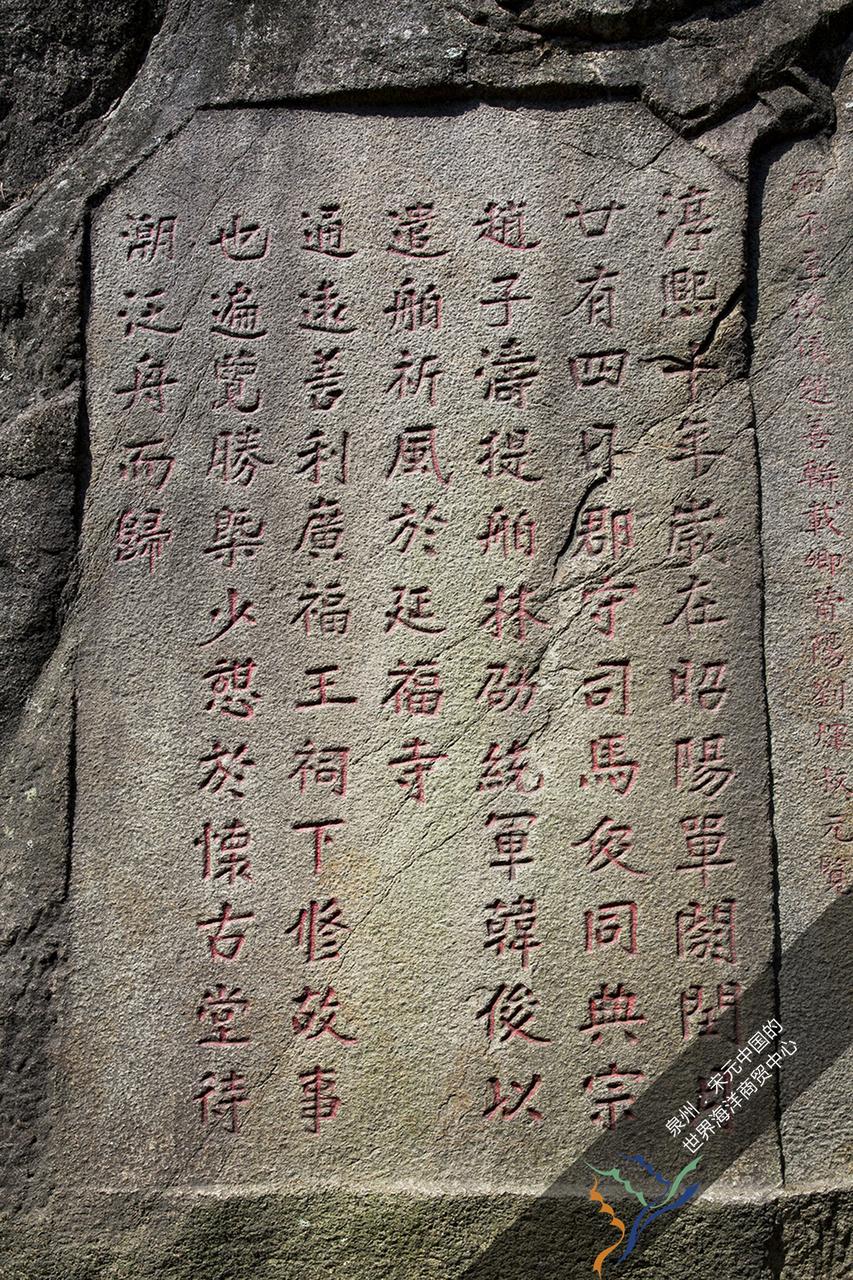 而不至載卿晉陽劉
淳熙十年歲在昭陽單閼閏月
廿有四日郡守司馬伋同典宗
趙子濤提舶林劭統軍韓俊以
遣舶祈風於延福寺
通遠善利廣福王祠下修故事
也遍覽勝槩少憇於懷古堂待
潮泛舟而歸
泉州：宋元中国的
世界海洋商贸中心